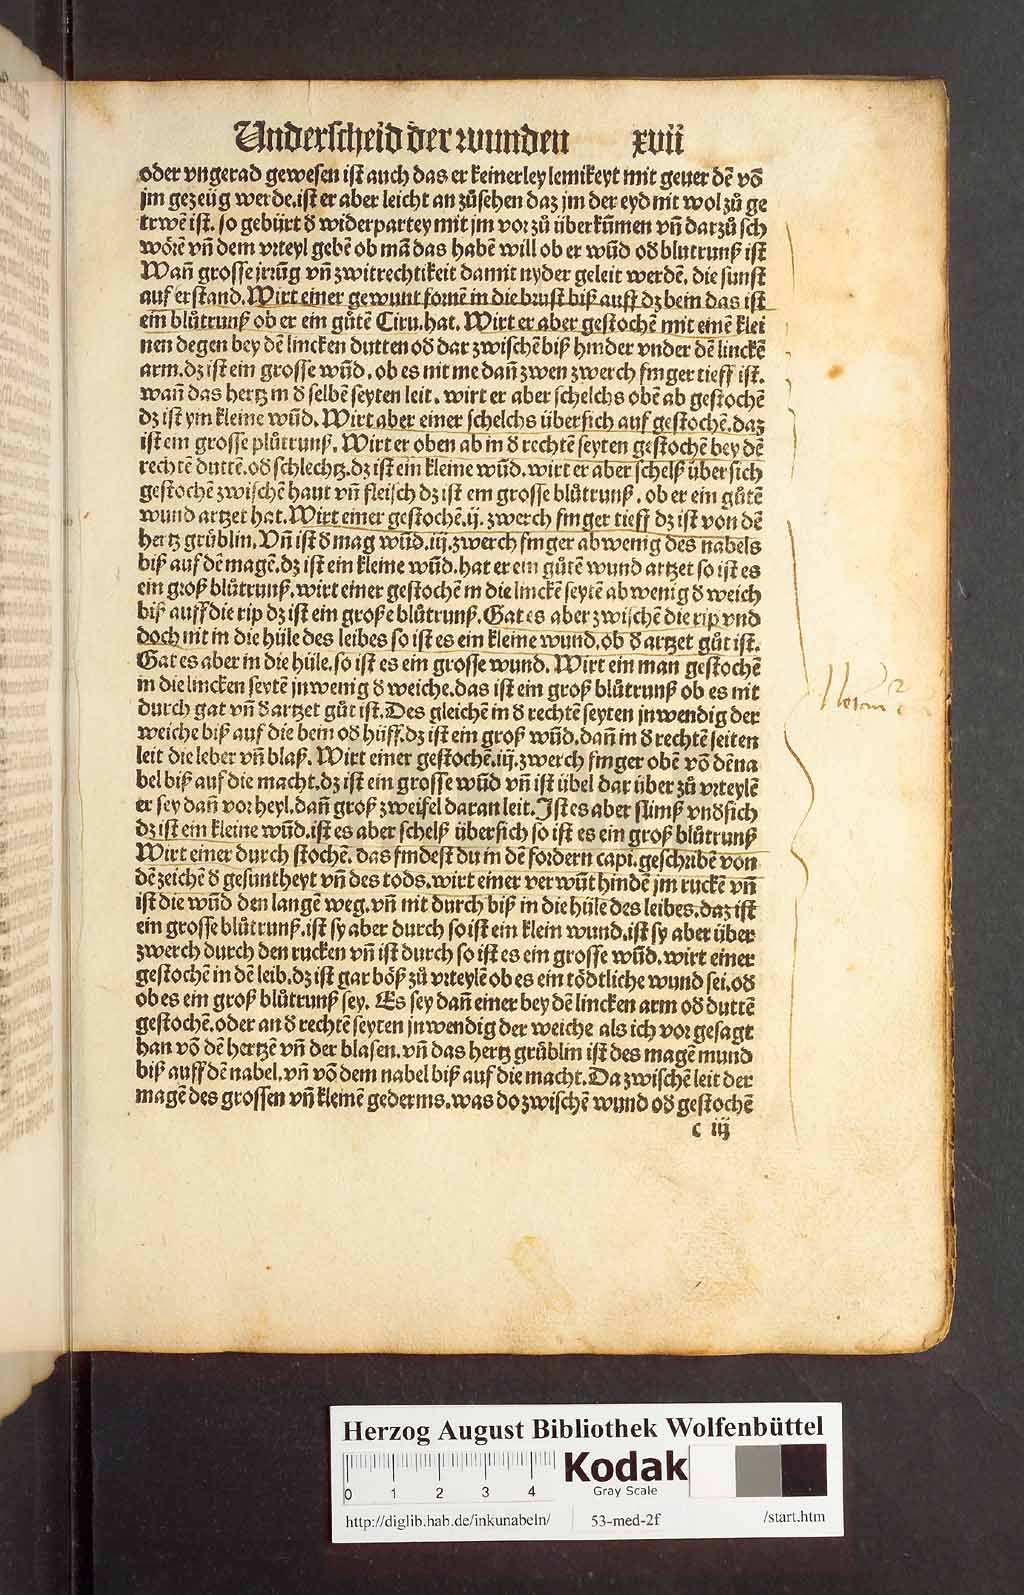 Underscheid der wunden xvii
oder vngerad gewesen ist auch das er keinerley lemikeyt mit geuer dē vō
jm gezeüg werde.ist er aber leicht an zůsehen daz jm der eyd nit wol zů ge
trwē ist. so gebürt d̕ widerpartey mit jm vor zů überkūmen vn̄ darzů sch
wörē vn̄ dem vrteyl gebē ob mā das habē will ob er wūd od̕ blutrunß ist
Wan̄ grosse jrrūg vn̄ zwitrechtikeit damit nyder geleit werdē. die sunst
auf erstand. Wirt einer gewunt fornē in die brust biß auff dz bein das ist
ein blůtrunß ob er ein gůtē Ciru. hat. Wirt er aber gestochē mit einē klei
nen degen bey dē lincken dutten od̕ dar zwischē biß hinder vnder dē linckē
arm. dz ist ein grosse wūd. ob es nit me dan̄ zwen zwerch finger tieff ist.
wan̄ das hertz in d̕ selbē seyten leit. wirt er aber schelchs obē ab gestochē
dz ist ym kleine wūd. Wirt aber einer schelchs übersich auf gestochē. daz
ist ein grosse plůtrunß. Wirt er oben ab in d̕ rechtē seyten gestochē bey dē
rechtē duttē. od̕ schlechtz. dz ist ein kleine wūd. wirt er aber schelß über sich
gestochē zwischē haut vn̄ fleisch dz ist ein grosse blůtrunß. ob er ein gůtē
wund artzet hat. Wirt einer gestochē. ij. zwerch finger tieff dz ist von dē
hertz grüblin. Vn̄ ist d̕ mag wūd. iij. zwerch finger ab wenig des nabels
biß auf dē magē. dz ist ein kleine wūd. hat er ein gůtē wund artzet so ist es
ein groß blůtrunß. wirt einer gestochē in die linckē seytē ab wenig d̕ weich
biß auff die rip dz ist ein große blůtrunß. Gat es aber zwischē die rip vnd
doch nit in die hüle des leibes so ist es ein kleine wund. ob d̕ artzet gůt ist.
Gat es aber in die hüle. so ist es ein grosse wund. Wirt ein man gestochē
in die lincken seytē jnwenig d̕ weiche. das ist ein groß blůtrunß ob es nit
durch gat vn̄ d̕ artzet gůt ist. Des gleichē in d̕ rechtē seyten jnwendig der
weiche biß auf die bein od̕ hüff. dz ist ein groß wūd. dan̄ in d̕ rechtē seiten
leit die leber vn̄ blaß. Wirt einer gestochē. iij. zwerch finger obē vō dē na
bel biß auf die macht. dz ist ein grosse wūd vn̄ ist übel dar über zů vrteylē
er sey dan̄ vor heyl. dan̄ groß zweifel daran leit. Ist es aber slimß vnd̕sich
dz ist ein kleine wūd. ist es aber schelß übersich so ist es ein groß blůtrunß
Wirt einer durch stochē. das findest du in dē fordern capi. geschribē von
dē zeichē d̕ gesuntheyt vn̄ des tods. wirt einer verwūt hindē jm ruckē vn̄
ist die wūd den langē weg. vn̄ nit durch biß in die hüle des leibes. daz ist
ein grosse blůtrunß. ist sy aber durch so ist ein klein wund. ist sy aber über
zwerch durch den rucken vn̄ ist durch so ist es ein grosse wūd. wirt einer
gestochē in dē leib. dz ist gar böß zů vrteylē ob es ein tödtliche wund sei. od̕
ob es ein groß blůtrunß sey. Es sey dan̄ einer bey dē lincken arm od̕ duttē
gestochē. oder an d̕ rechtē seyten jnwendig der weiche als ich vor gesagt
han vō dē hertzē vn̄ der blasen. vn̄ das hertz grüblin ist des magē mund
biß auff dē nabel. vn̄ vō dem nabel biß auf die macht. Da zwischē leit der
magē des grossen vn̄ kleinē gederms. was do zwischē wund od̕ gestochē
c iij
Herzog August Bibliothek Wolfenbüttel
0 1 2 3 4
Kodak
Gray Scale
http://diglib.hab.de/inkunabeln/ 53-med-2f /start.htm